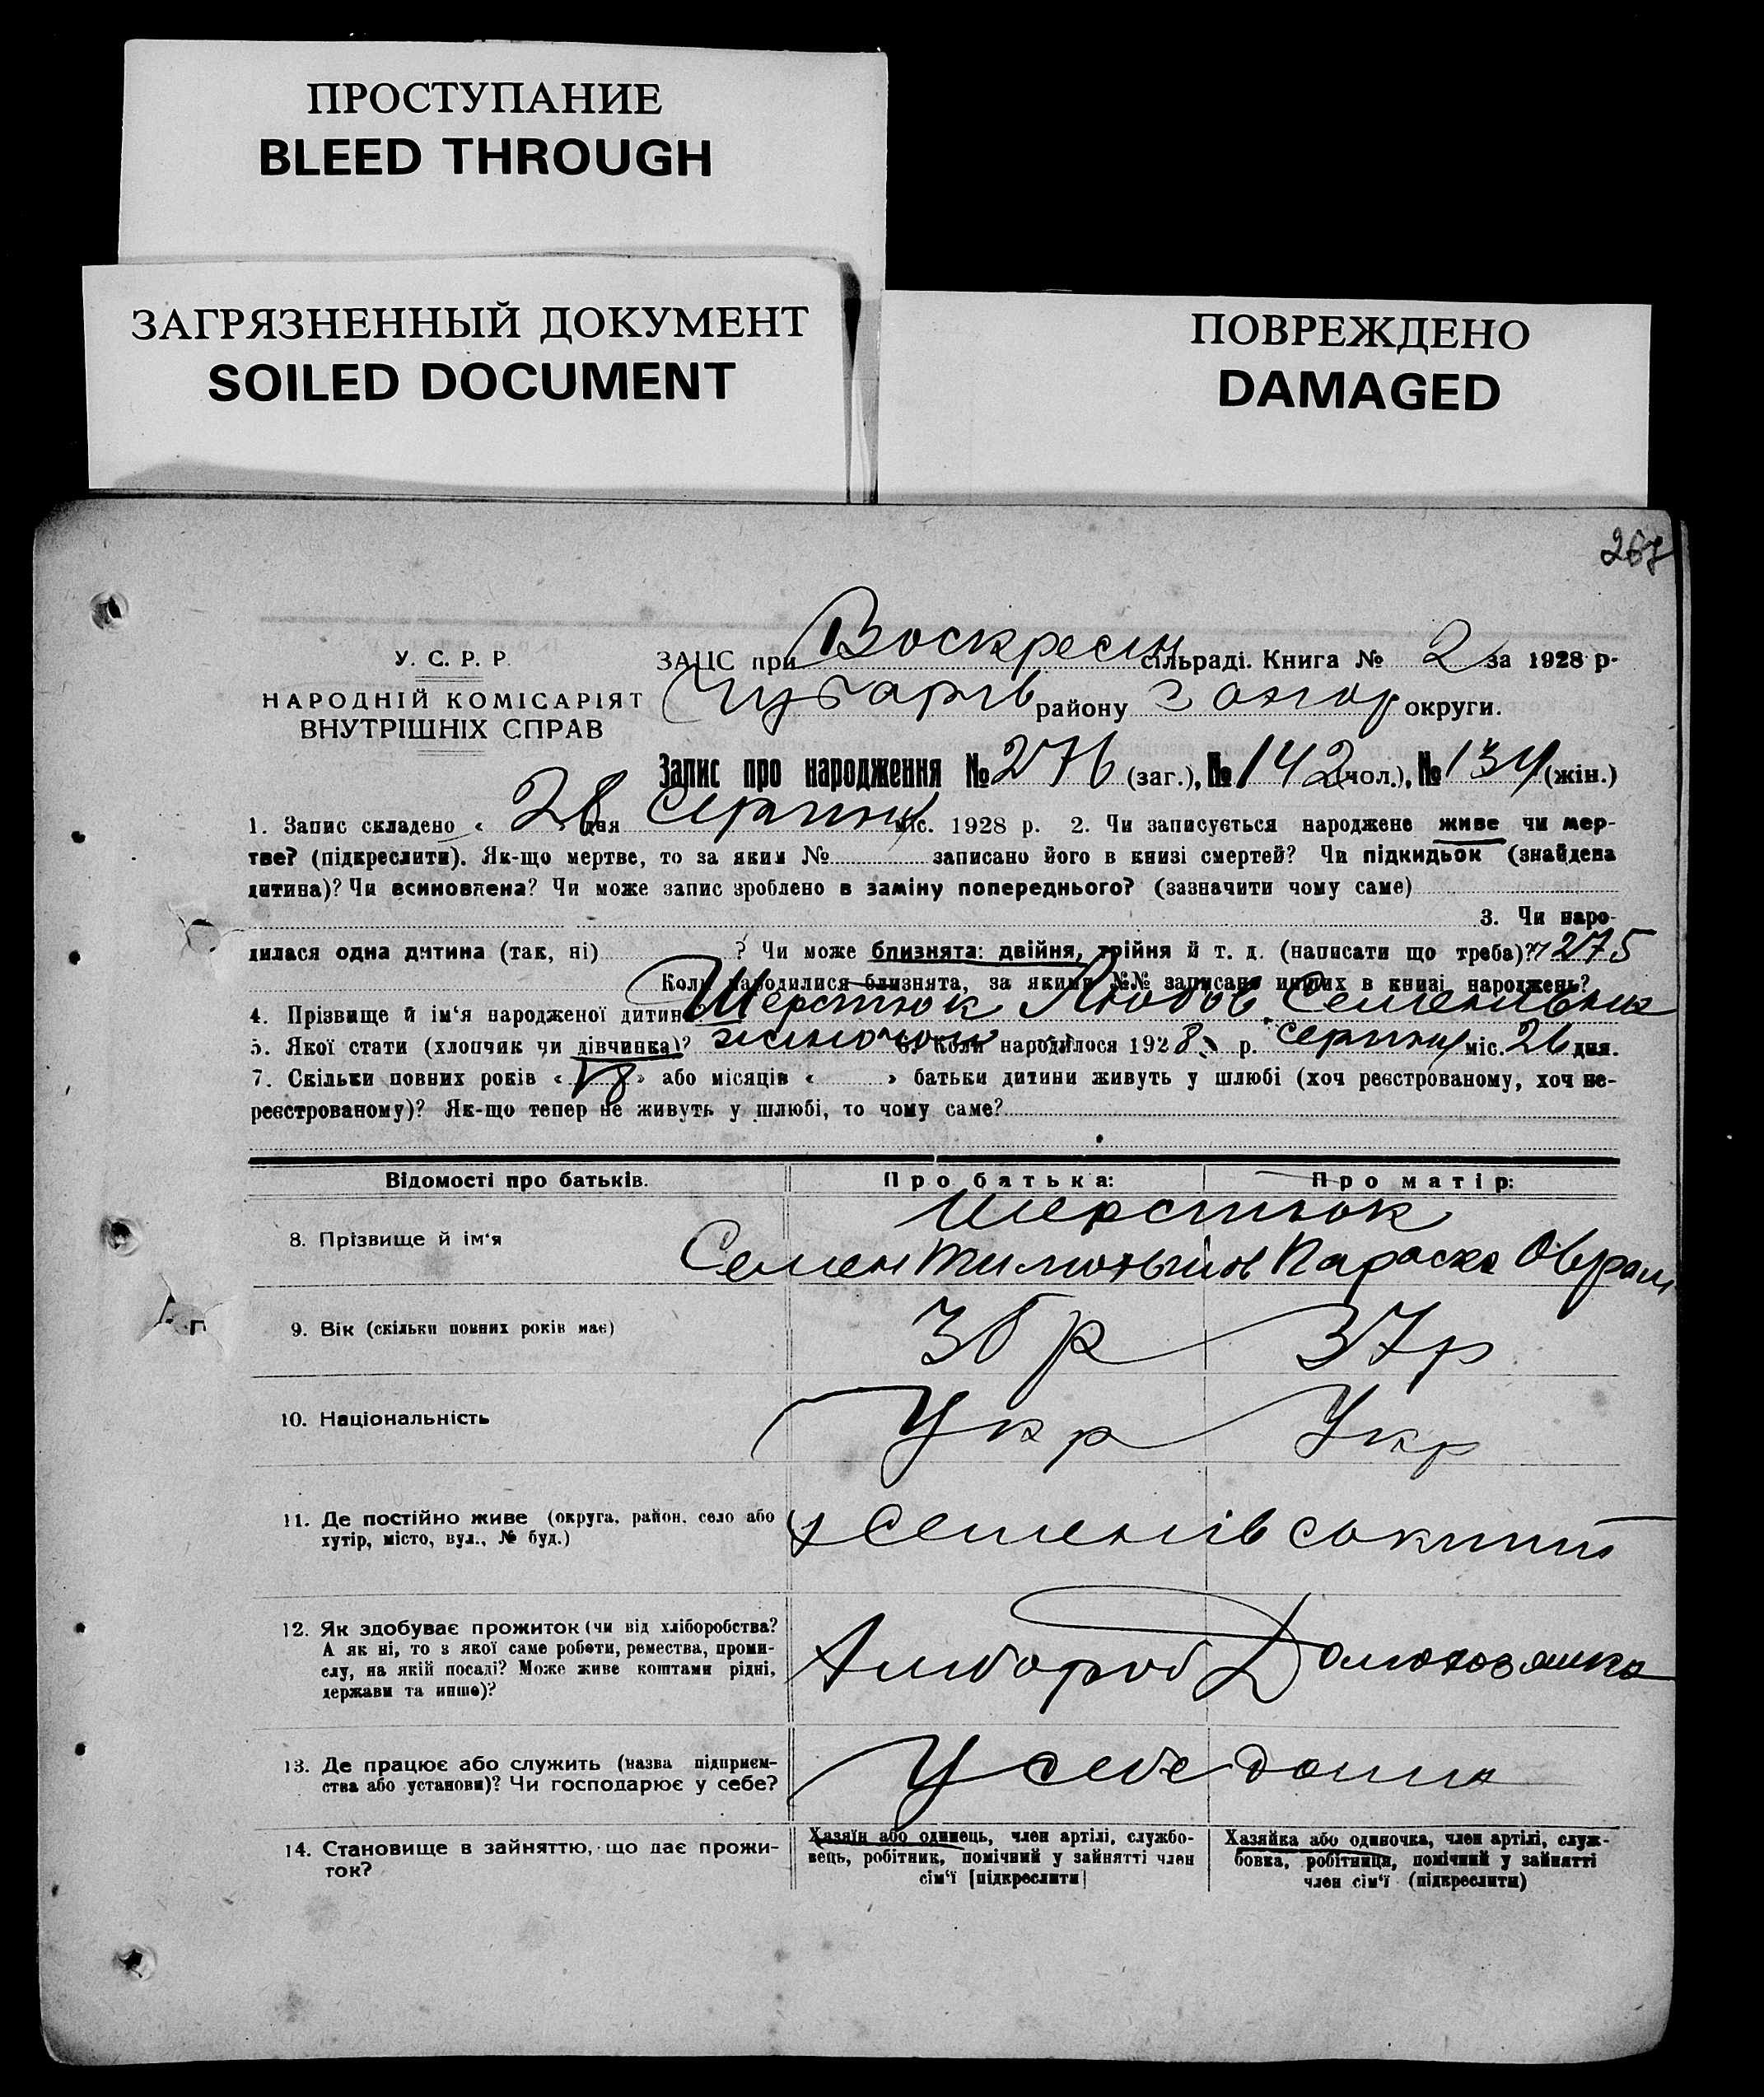 ПРОСТУПАНИЕ
BLEED THROUGH
ЗАГРЯЗНЕННЫЙ ДОКУМЕНТ
SOILED DOCUMENT
ПОВРЕЖДЕНО
DAMAGED
267
У. С. Р. Р.
НАРОДНІЙ КОМІСАРІЯТ
ВНУТРІШНІХ СПРАВ
ЗАЦС при Воскресен сільраді. Книга № 2 за 1928 р.
Чубарів району Запор округи.
Запис про народження № 276 (заг.), № 142 (чол.), № 134 (жін.)
1. Запис складено « 28 дня серпня міс. 1928 р. 2. Чи записується народжене живе чи мер-
тве? (підкреслити). Як-що мертве, то за яким № записано його в книзі смертей? Чи підкидьок (знайдена
дитина)? Чи всиновлена? Чи може запис зроблено в заміну попереднього? (зазначити чому саме)
3. Чи наро-
дилася одна дитина (так, ні) ? Чи може близнята: двійня, трійня й т. д. (написати що треба)? 275
Коли народилися близнята, за якими №№ записано инших в книзі народжень?
4. Прізвище й ім'я народженої дитини Шерстюк Любов Семенівна
5. Якої стати (хлопчик чи дівчинка)? жіночои 6. Коли народилося 1928 р. серпня міс. 26 дня.
7. Скільки повних років « » або місяців « » батьки дитини живуть у шлюбі (хоч реєстрованому, хоч не-
реєстрованому)? Як-що тепер не живуть у шлюбі, то чому саме?
Відомості про батьків. Про батька: Про матір:
8. Прізвище й ім'я Шерстюк
Семен Тимофіїв Параска Оврам
9. Вік (скільки повних років має) 36 р 37 р
10. Національність Укр Укр
11. Де постійно живе (округа, район, село або
хутір, місто, вул., № буд.)
х Семенів
12. Як здобуває прожиток (чи від хліборобства?
А як ні, то з якої саме роботи, ремества, проми-
слу, на якій посаді? Може живе коштами рідні,
держави та инше)?
Хлібороб Домохозяшка
13. Де працює або служить (назва підприєм-
ства або установи)? Чи господарює у себе?
У себе дома
14. Становище в зайняттю, що дає прожи-
ток?
Хазяїн або одинець, член артілі, службо-
вець, робітник, помічний у зайнятті член
сім'ї [підкреслити]
Хазяйка або одиночка, член артілі, служ-
бовка, робітниця, помічний у зайнятті
член сім'ї (підкреслити)